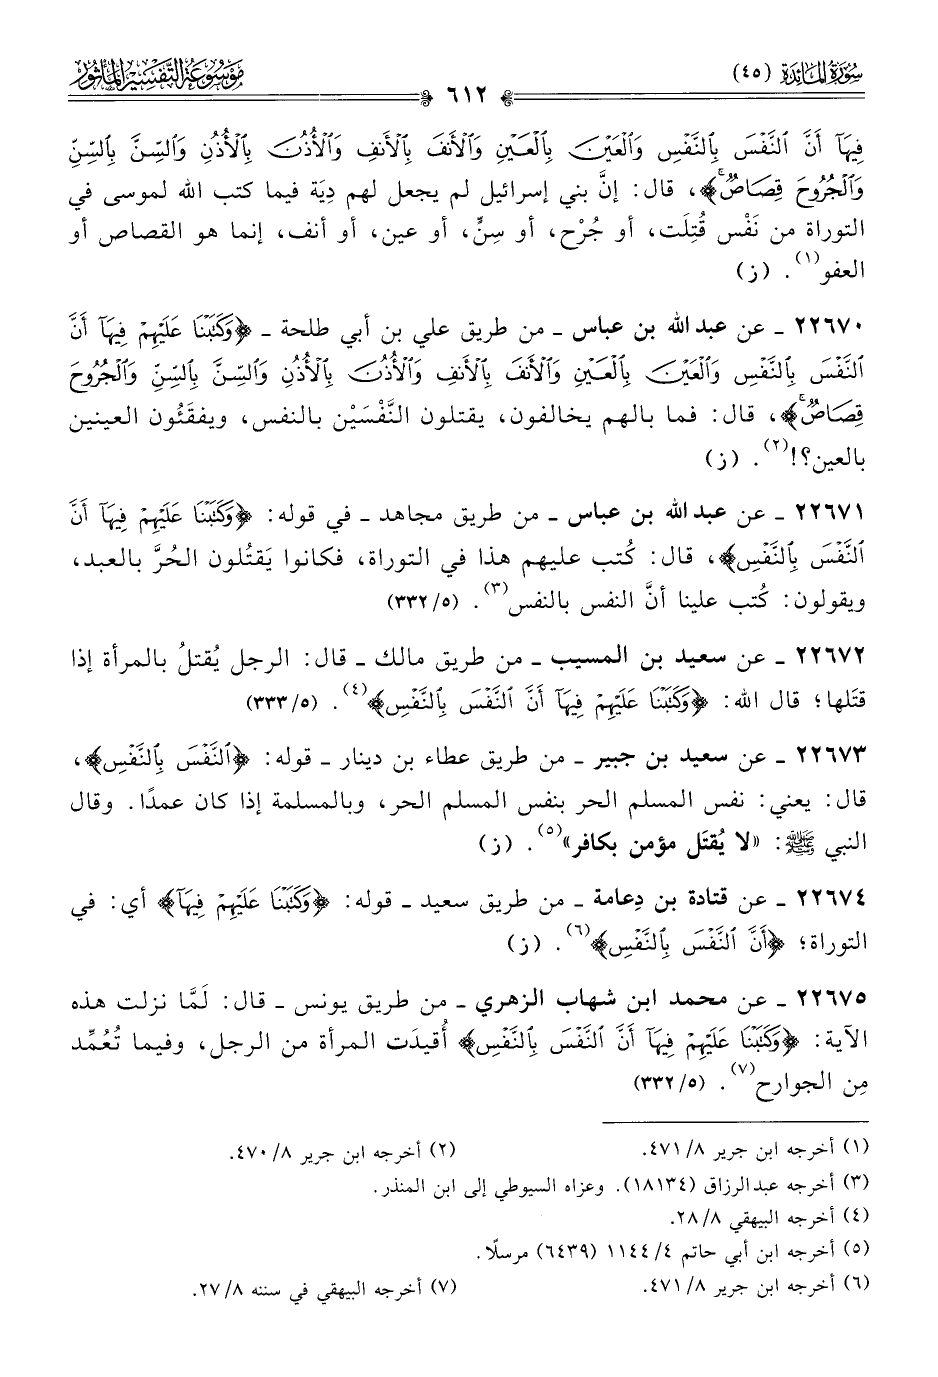 سُورَةُ المَائدَة (٤٥)
٦١٢
مَوْسُوعَةُ التَّفْسِيرِ المَأْثُور
فِيهَآ أَنَّ ٱلنَّفْسَ بِٱلنَّفْسِ وَٱلْعَيْنَ بِٱلْعَيْنِ وَٱلْأَنفَ بِٱلْأَنفِ وَٱلْأُذُنَ بِٱلْأُذُنِ وَٱلسِّنَّ بِٱلسِّنِّ
وَٱلْجُرُوحَ قِصَاصٌۚ﴾، قال: إنَّ بني إسرائيل لم يجعل لهم دِيَة فيما كتب الله لموسى في
التوراة من نَفْس قُتِلَت، أو جُرْح، أو سِنٍّ، أو عين، أو أنف، إنما هو القصاص أو
العفو(١). (ز)
٢٢٦٧٠ ـ عن عبد الله بن عباس ـ من طريق علي بن أبي طلحة ـ ﴿وَكَتَبْنَا عَلَيْهِمْ فِيهَآ أَنَّ
ٱلنَّفْسَ بِٱلنَّفْسِ وَٱلْعَيْنَ بِٱلْعَيْنِ وَٱلْأَنفَ بِٱلْأَنفِ وَٱلْأُذُنَ بِٱلْأُذُنِ وَٱلسِّنَّ بِٱلسِّنِّ وَٱلْجُرُوحَ
قِصَاصٌۚ﴾، قال: فما بالهم يخالفون، يقتلون النَّفْسَيْن بالنفس، ويفقَئُون العينين
بالعين؟!(٢). (ز)
٢٢٦٧١ ـ عن عبد الله بن عباس ـ من طريق مجاهد ـ في قوله: ﴿وَكَتَبْنَا عَلَيْهِمْ فِيهَآ أَنَّ
ٱلنَّفْسَ بِٱلنَّفْسِ﴾، قال: كُتب عليهم هذا في التوراة، فكانوا يَقتُلون الحُرَّ بالعبد،
ويقولون: كُتب علينا أنَّ النفس بالنفس(٣). (٥/٣٣٢)
٢٢٦٧٢ ـ عن سعيد بن المسيب ـ من طريق مالك ـ قال: الرجل يُقتلُ بالمرأة إذا
قتَلها؛ قال الله: ﴿وَكَتَبْنَا عَلَيْهِمْ فِيهَآ أَنَّ ٱلنَّفْسَ بِٱلنَّفْسِ﴾(٤). (٥/٣٣٣)
٢٢٦٧٣ ـ عن سعيد بن جبير ـ من طريق عطاء بن دينار ـ قوله: ﴿ٱلنَّفْسَ بِٱلنَّفْسِ﴾،
قال: يعني: نفس المسلم الحر بنفس المسلم الحر، وبالمسلمة إذا كان عمدًا. وقال
النبي ﷺ: «لا يُقتَل مؤمن بكافر»(٥). (ز)
٢٢٦٧٤ ـ عن قتادة بن دِعامة ـ من طريق سعيد ـ قوله: ﴿وَكَتَبْنَا عَلَيْهِمْ فِيهَآ﴾ أي: في
التوراة؛ ﴿أَنَّ ٱلنَّفْسَ بِٱلنَّفْسِ﴾(٦). (ز)
٢٢٦٧٥ ـ عن محمد ابن شهاب الزهري ـ من طريق يونس ـ قال: لَمَّا نزلت هذه
الآية: ﴿وَكَتَبْنَا عَلَيْهِمْ فِيهَآ أَنَّ ٱلنَّفْسَ بِٱلنَّفْسِ﴾ أُقيدَت المرأة من الرجل، وفيما تُعُمِّد
مِن الجوارح(٧). (٥/٣٣٢)
(١) أخرجه ابن جرير ٨/ ٤٧١. (٢) أخرجه ابن جرير ٨/ ٤٧٠.
(٣) أخرجه عبد الرزاق (١٨١٣٤). وعزاه السيوطي إلى ابن المنذر.
(٤) أخرجه البيهقي ٨/ ٢٨.
(٥) أخرجه ابن أبي حاتم ٤/ ١١٤٤ (٦٤٣٩) مرسلًا.
(٦) أخرجه ابن جرير ٨/ ٤٧١. (٧) أخرجه البيهقي في سننه ٨/ ٢٧.